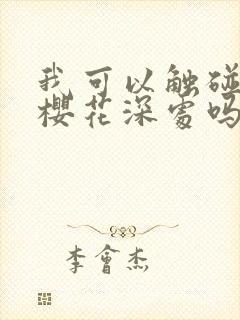 我可以触碰
櫻花深處吗
李會杰